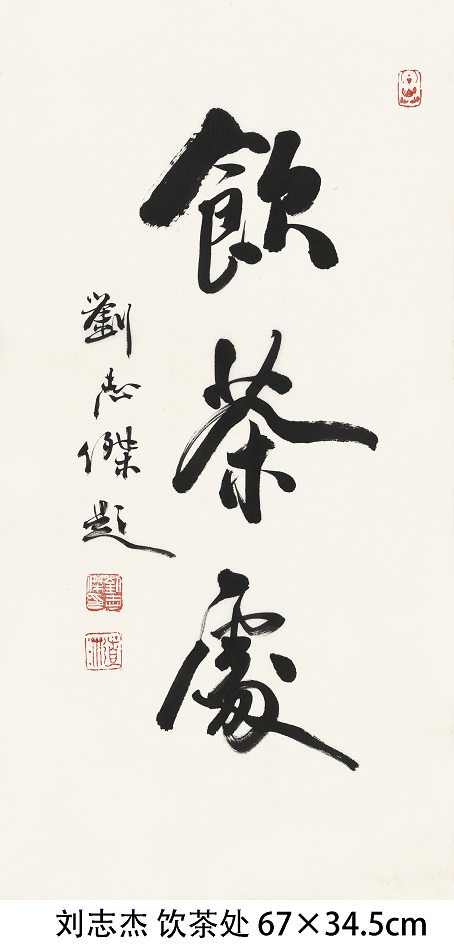 飲茶處
劉志傑題
刘志杰 饮茶处 67×34.5cm